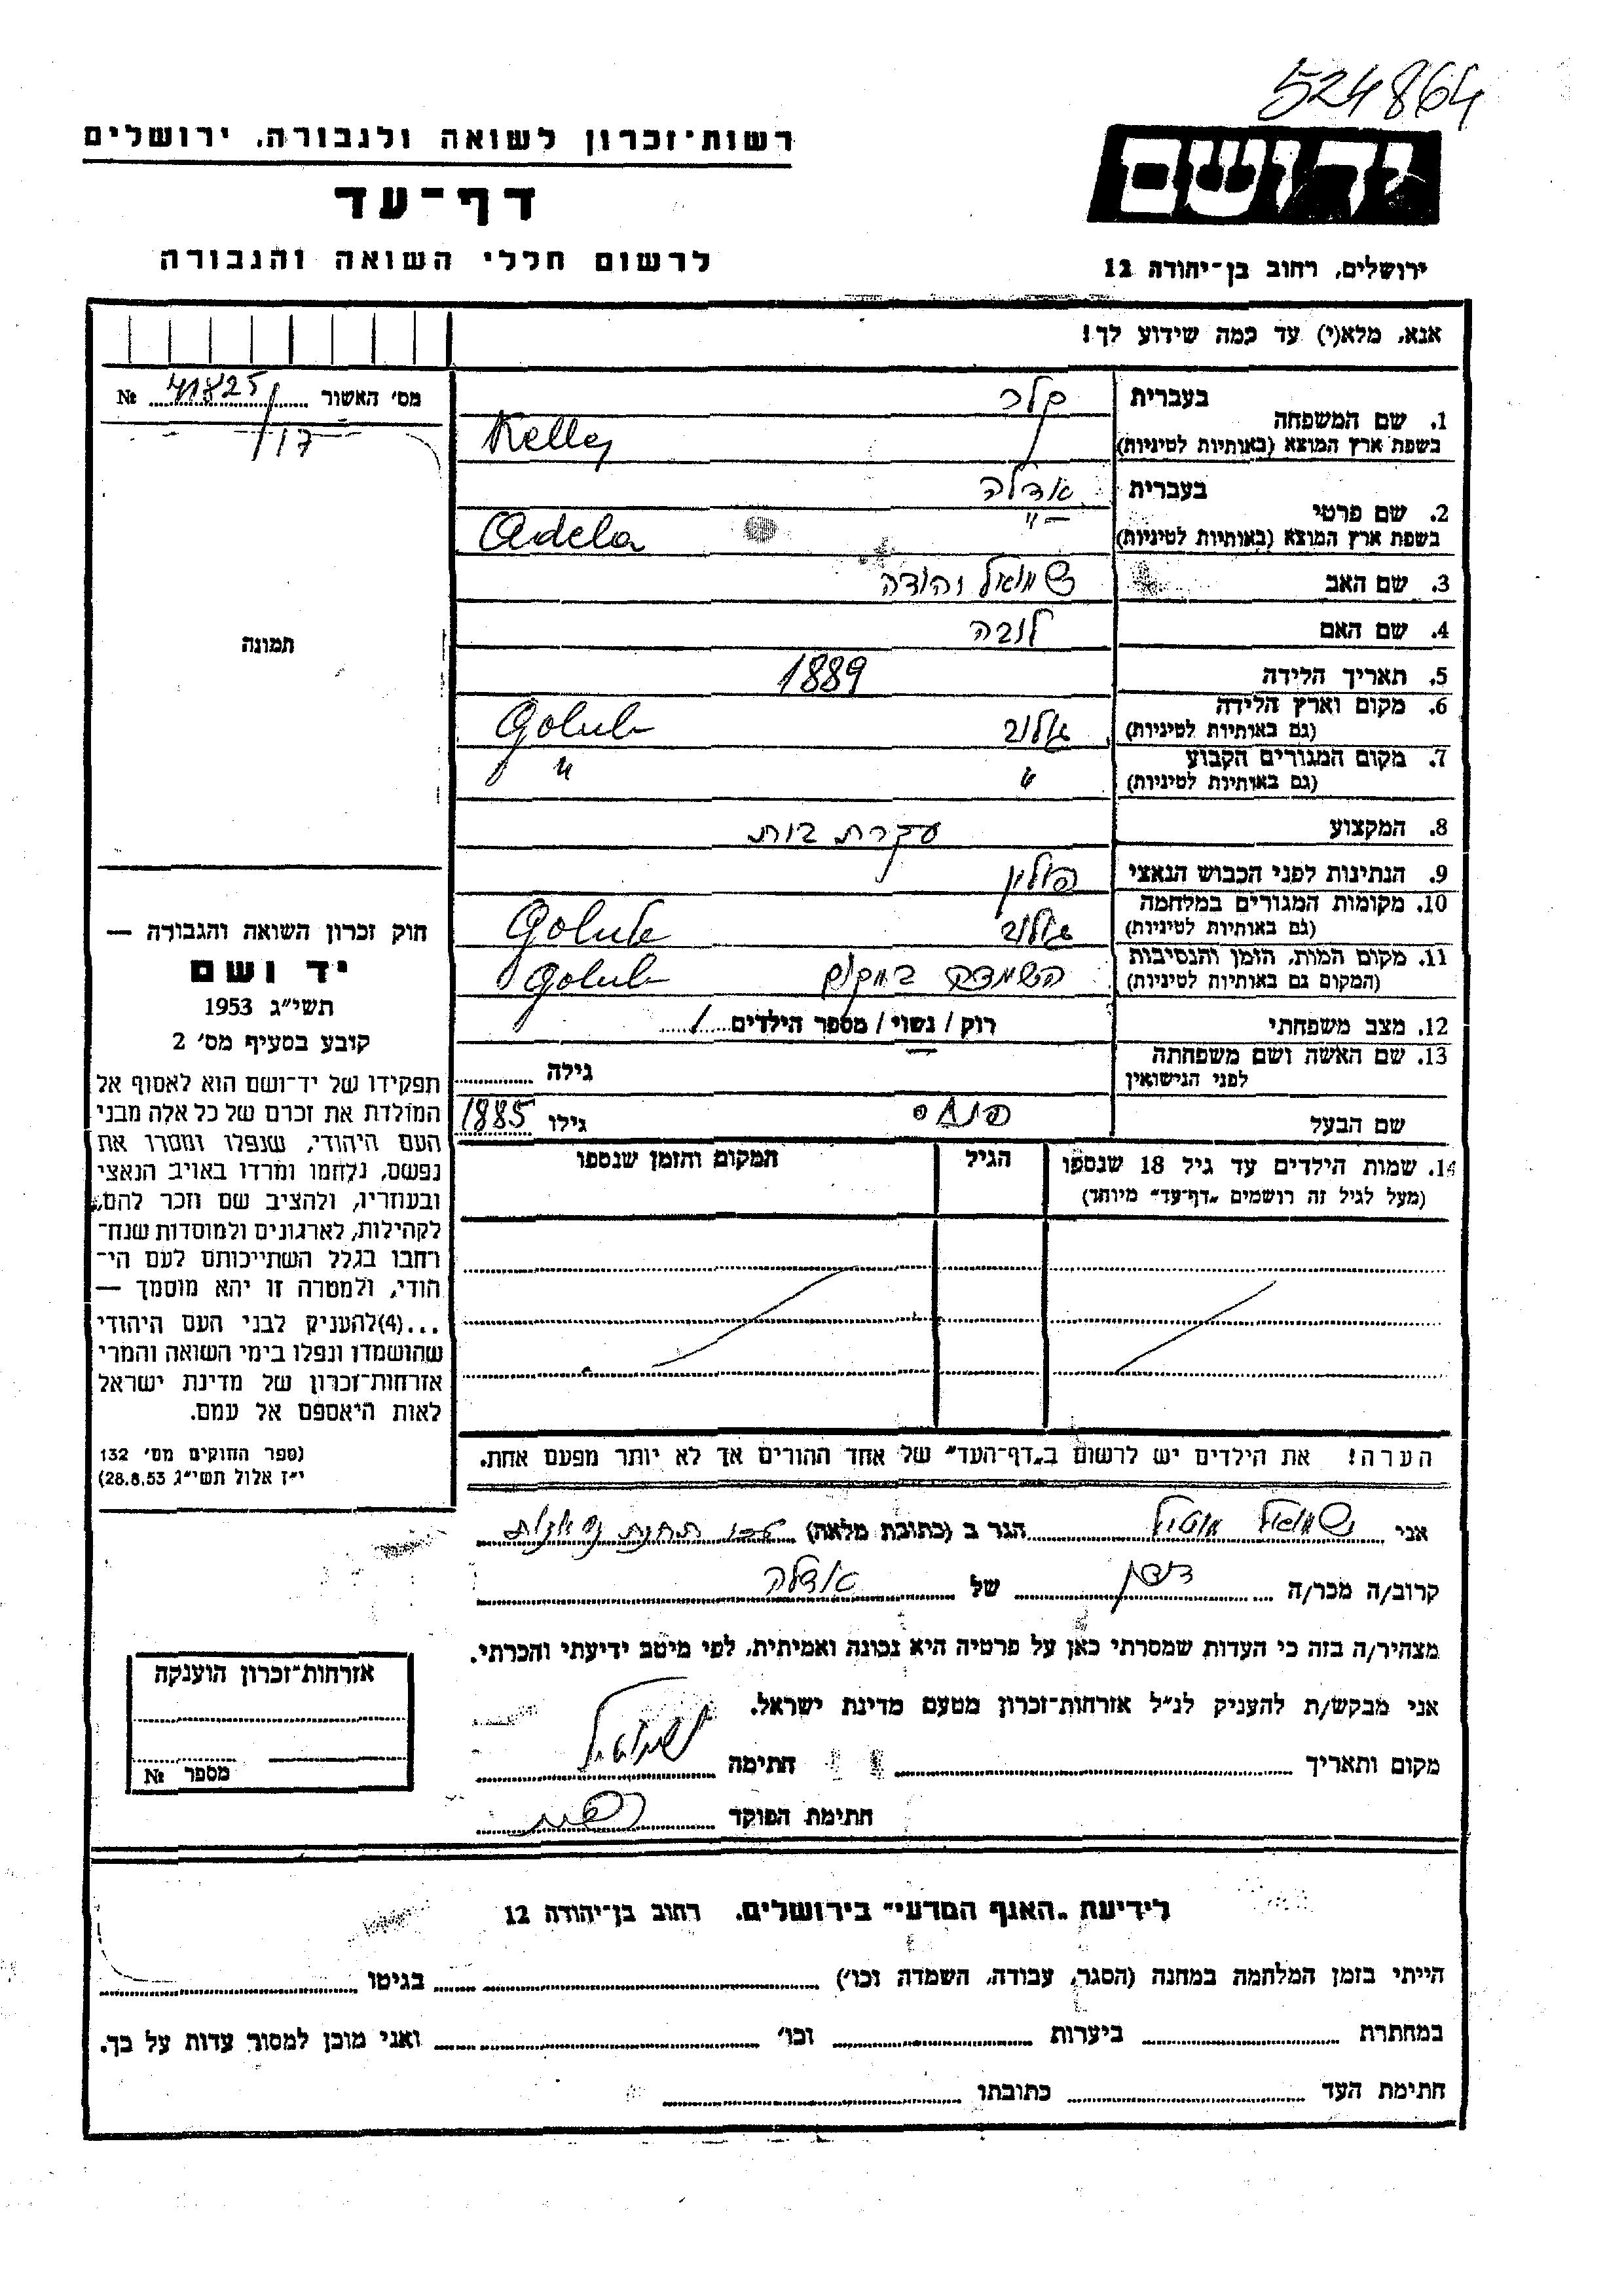 524864
רשות־זכרון לשואה ולגבורה, ירושלים
יד ושם
דף־עד
לרשום חללי השואה והגבורה
ירושלים, רחוב בן־יהודה 12
אנא, מלא(י) עד כמה שידוע לך!
מס' האשור 41825 №
17
1. שם המשפחה
בעברית קלר
בשפת ארץ המוצא (באותיות לטיניות) Keller
2. שם פרטי
בעברית אדלה
בשפת ארץ המוצא (באותיות לטיניות) Adela
3. שם האב שמואל יהודה
4. שם האם לובה
5. תאריך הלידה 1889
6. מקום וארץ הלידה
(גם באותיות לטיניות) גולוב Golub
7. מקום המגורים הקבוע
(גם באותיות לטיניות) " "
8. המקצוע עקרת בית
9. הנתינות לפני הכבוש הנאצי פולין
10. מקומות המגורים במלחמה
(גם באותיות לטיניות) גולוב Golub
11. מקום המות, הזמן והנסיבות
(המקום גם באותיות לטיניות) הושמדה במקום Golub
12. מצב משפחתי רוק / נשוי / מספר הילדים 1
13. שם האשה ושם משפחתה
לפני הנישואין גילה
שם הבעל פנחס גילו 1885
14. שמות הילדים עד גיל 18 שנספו הגיל המקום והזמן שנספו
(מעל לגיל זה רושמים „דף־עד" מיוחד)
תמונה
חוק זכרון השואה והגבורה —
יד ושם
תשי"ג 1953
קובע בסעיף מס' 2
תפקידו של יד־ושם הוא לאסוף אל
המולדת את זכרם של כל אלה מבני
העם היהודי, שנפלו ומסרו את
נפשם, נלחמו ומרדו באויב הנאצי
ובעוזריו, ולהציב שם וזכר להם,
לקהילות, לארגונים ולמוסדות שנח־
רחבו בגלל השתייכותם לעם הי־
הודי, ולמטרה זו יהא מוסמך —
...(4)להעניק לבני העם היהודי
שהושמדו ונפלו בימי השואה והמרי
אזרחות־זכרון של מדינת ישראל
לאות היאספם אל עמם.
(ספר החוקים מס' 132
י"ז אלול תשי"ג 28.8.53)
הערה! את הילדים יש לרשום ב„דף־העד" של אחד ההורים אך לא יותר מפעם אחת.
אני שמואל הגר ב (כתובת מלאה)
קרוב/ה מכר/ה של אדלה
מצהיר/ה בזה כי העדות שמסרתי כאן על פרטיה היא נכונה ואמיתית, לפי מיטב ידיעתי והכרתי.
אני מבקש/ת להעניק לנ"ל אזרחות־זכרון מטעם מדינת ישראל.
מקום ותאריך חתימה
חתימת הפוקד
אזרחות־זכרון הוענקה
מספר №
לידיעת „האגף המדעי" בירושלים, רחוב בן־יהודה 12
הייתי בזמן המלחמה במחנה (הסגר, עבודה, השמדה וכו') בגיטו
במחתרת ביערות וכו' ואני מוכן למסור עדות על כך.
חתימת העד כתובתו